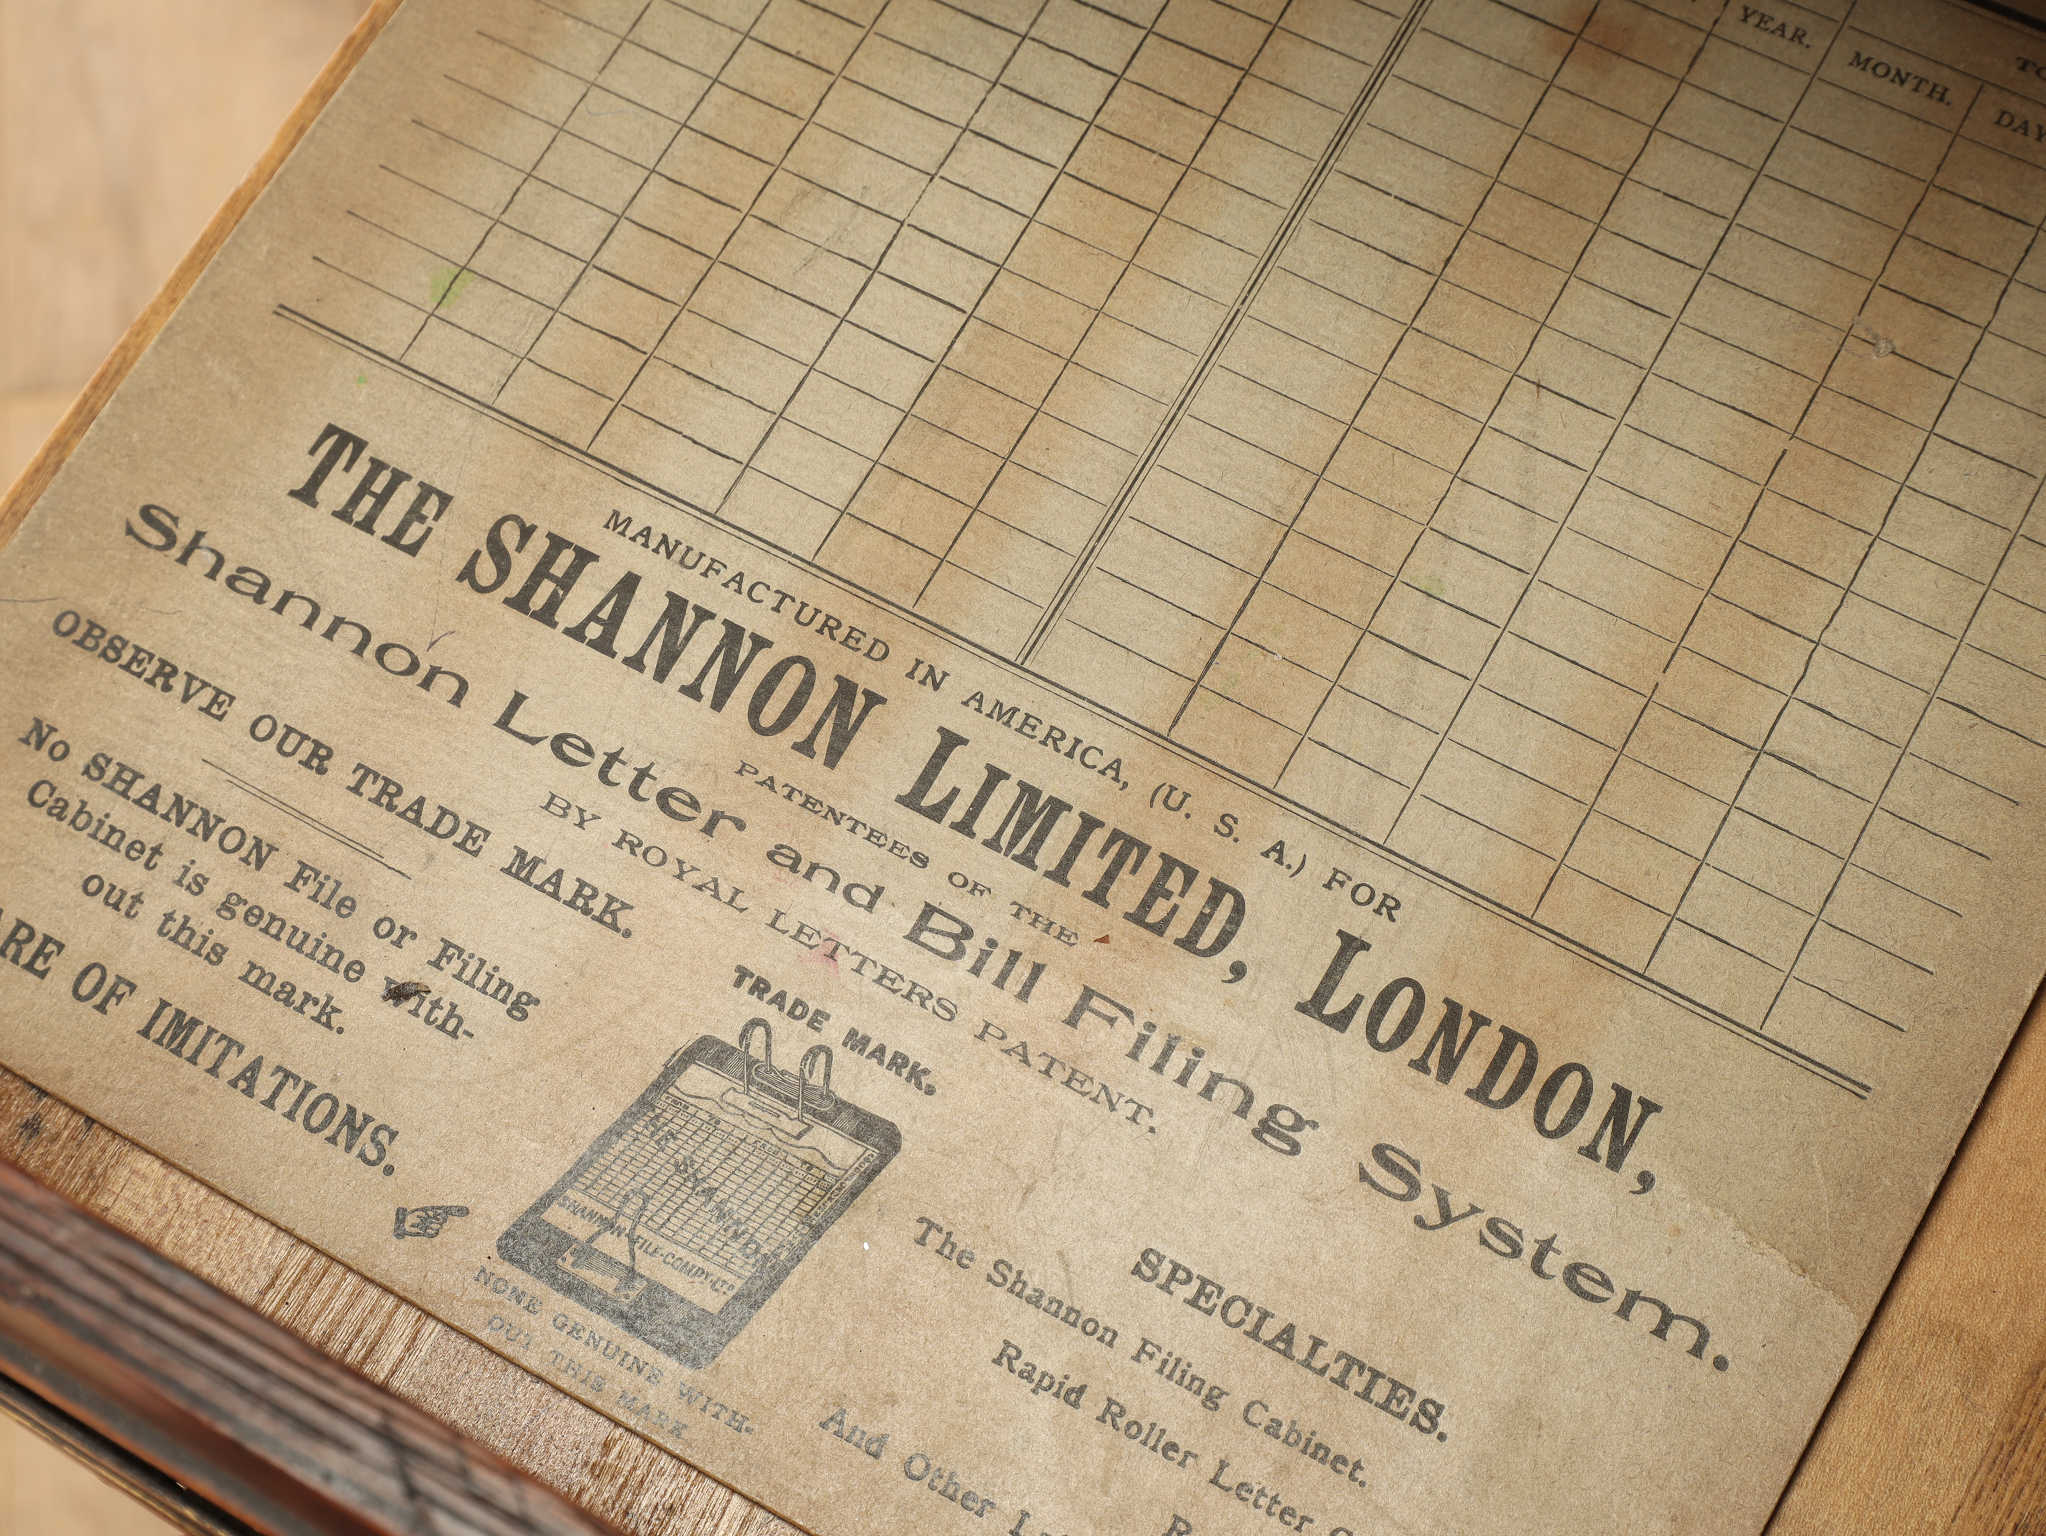 YEAR.
MONTH.
MANUFACTURED IN AMERICA, (U. S. A.) FOR
THE SHANNON LIMITED, LONDON,
PATENTEES OF THE
Shannon Letter and Bill Filing System.
BY ROYAL LETTERS PATENT.
OBSERVE OUR TRADE MARK.
No SHANNON File or Filing
Cabinet is genuine with-
out this mark.
OF IMITATIONS.
TRADE MARK.
THE SHANNON
SHANNON-FILE-COMPY-LTD
NONE GENUINE WITH-
OUT THIS MARK
SPECIALTIES.
The Shannon Filing Cabinet.
Rapid Roller Letter
And Other